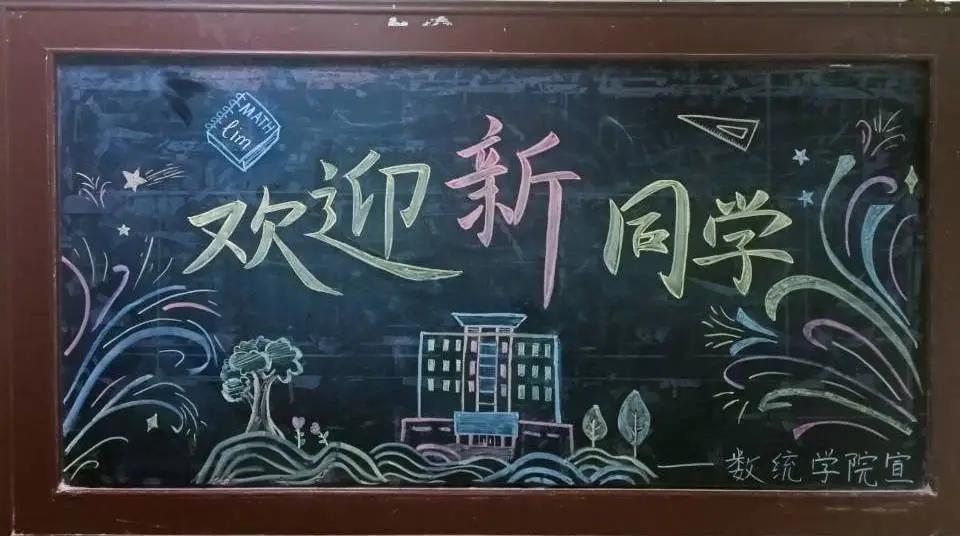 MATH
lim
欢迎新同学
——数统学院宣